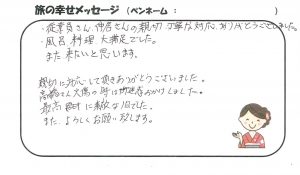 旅の幸せメッセージ（ペンネーム：　　　　　）
・従業員さん、仲居さんの親切、丁寧な対応、ありがとうございました。
・風呂、料理、大満足でした。
また来たいと思います。
親切に対応して頂きありがとうございました。
高橋さん 大場の時は世話をおかけしました。
最高齢に素敵な1日でした。
また、よろしくお願い致します。